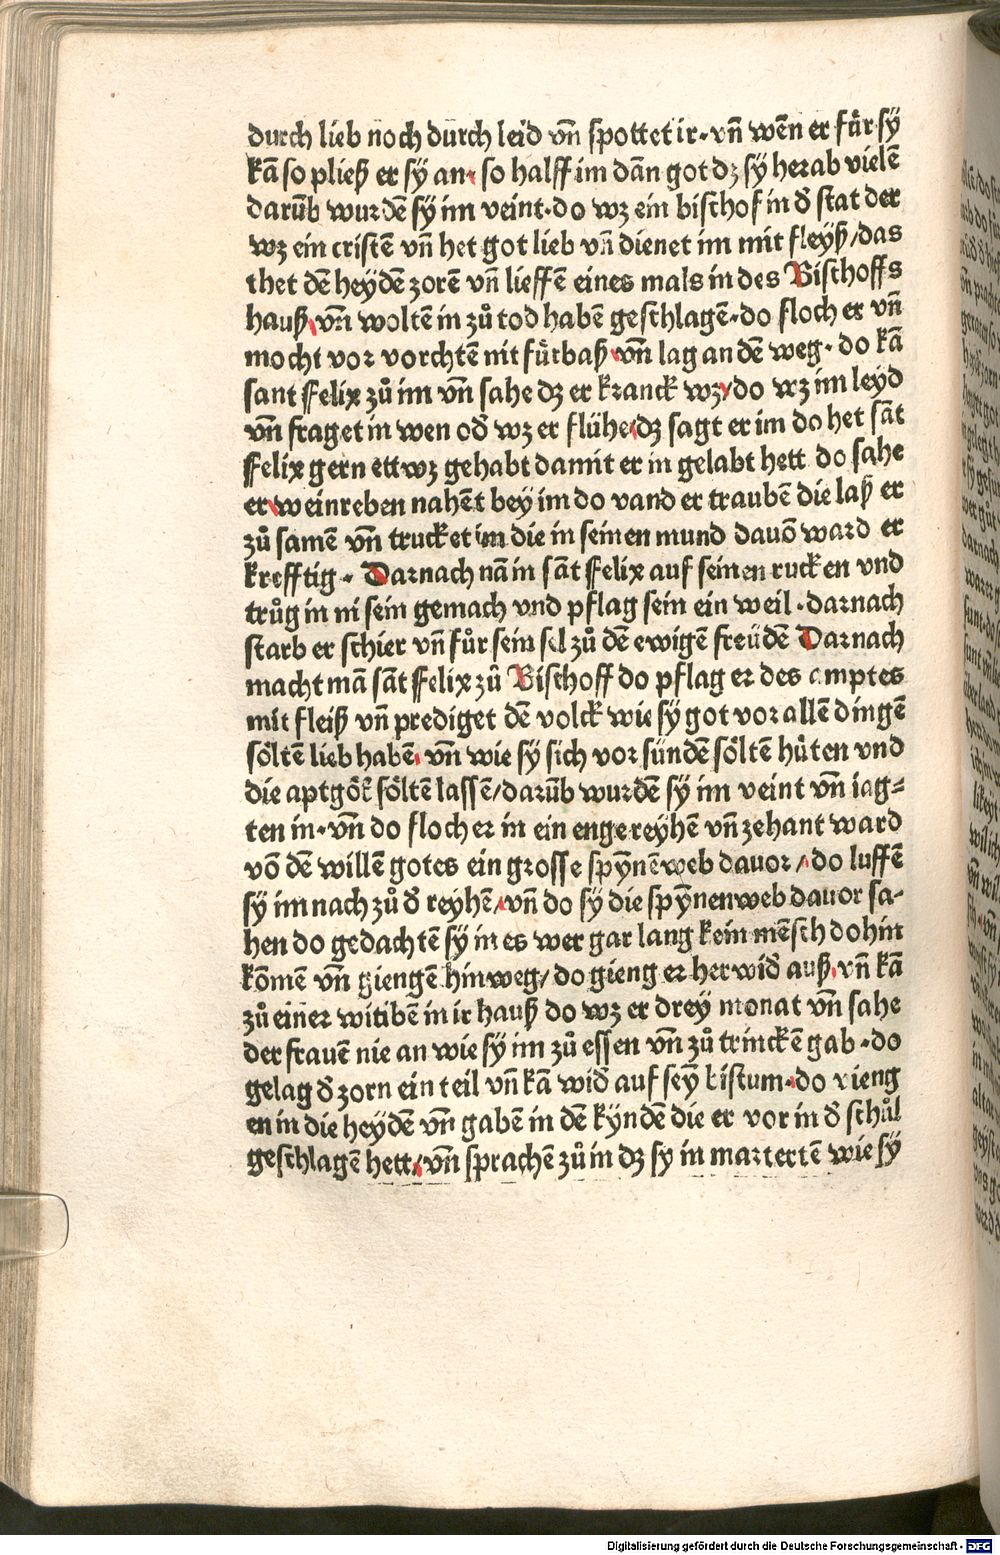 durch lieb noch durch leid vn̄ spottet ir·vn̄ wēn er fu̇r sÿ
kā so pließ er sÿ an· so halff im dān got dꝫ sÿ herab vielē
darūb wurdē sÿ im veint·do wꝫ ein bischof in ð stat der
wꝫ ein cristē vn̄ het got lieb vn̄ dienet im mit fleyß/das
thet dē heydē zorē vn̄ lieffē eines mals in des Bischoffs
hauß vn̄ woltē in zů tod habē geschlagē·do floch er vn̄
mocht vor vorchtē nit fürbaß vn̄ lag an dē weg· do kā
sant Felix zů im vn̄ sahe dꝫ er kranck wꝫ/do wꝫ im leyd
vn̄ fraget in wen oð wꝫ er flühe dꝫ sagt er im do het sāt
Felix gern ettwꝫ gehabt damit er in gelabt hett do sahe
er weinreben nahēt bey im do vand er traubē die laß er
zů samē vn̄ trucket im die in seinen mund dauō ward er
krefftig· Darnach nā in sāt Felix auf seinen rucken vnd
trůg in ni sein gemach vnd pflag sein ein weil·darnach
starb er schier vn̄ fůr sein sel zů dē ewigē freüdē Darnach
macht mā sāt Felix zů Bischoff do pflag er des amptes
mit fleiß vn̄ prediget dē volck wie sÿ got vor allē dingē
söltē lieb habē vn̄ wie sÿ sich vor sündē söltē hüten vnd
die aptgöt̄ söltē lassē/darūb wurdē sÿ im veint vn̄ iag=
ten in·vn̄ do floch er in ein enge reyhē vn̄ zehant ward
vō dē willē gotes ein grosse spÿnēweb dauor/do luffē
sÿ im nach zů ð reyhē/vn̄ do sÿ die spÿnenweb dauor sa-
hen do gedachtē sÿ in es wer gar lang kein mēsch dohin
kōmē vn̄ giengē hinweg/do gieng er herwið auß vn̄ kā
zů einer witibē in ir hauß do wꝫ er drey monat vn̄ sahe
der frauē nie an wie sÿ im zů essen vn̄ zů trinckē gab·do
gelag ð zorn ein teil vn̄ kā wið auf seÿ bistum·do vieng
en in die heydē vn̄ gabē in dē kÿndē die er vor in ð schůl
geschlagē hett/vn̄ sprachē zů in dꝫ sy in martertē wie sÿ
Digitalisierung gefördert durch die Deutsche Forschungsgemeinschaft - DFG